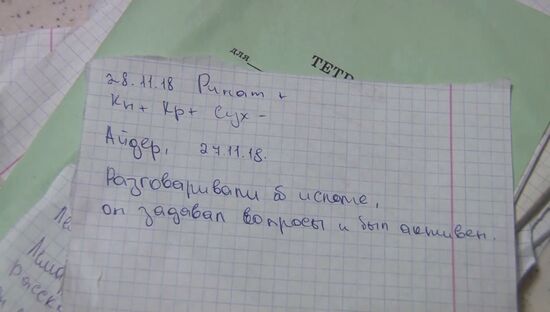 для
ТЕТР
28.11.18 Ринат +
Кн+ Кр+ Сух -
Айдер, 27.11.18.
Разговаривали об исламе,
он задавал вопросы и был активен.